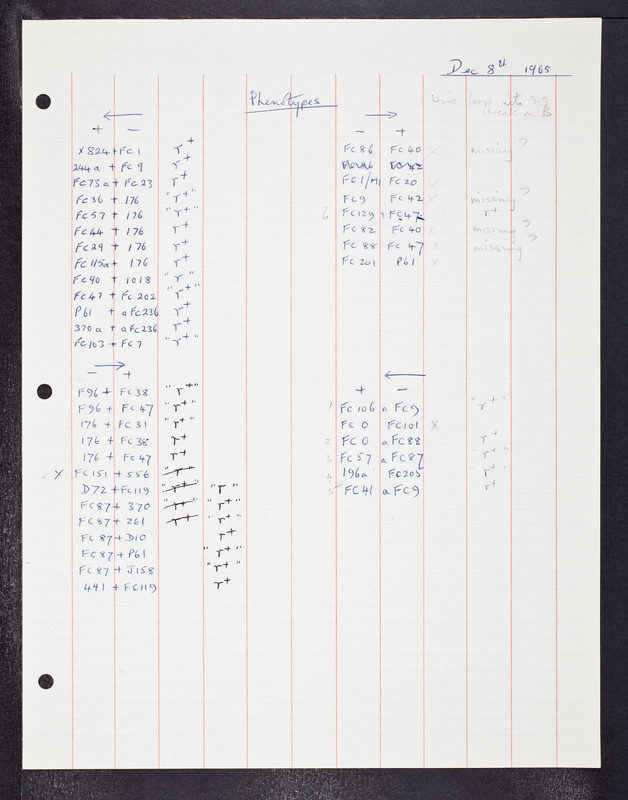 Dec 8th 1965
Phenotypes
←
+ −
X824 + FC1 r+
244a + FC9 r+
FC73a + FC23 r+
FC36 + 176 "r+"
FC57 + 176 "r+"
FC44 + 176 r+
FC29 + 176 r+
FC115a + 176 r+
FC90 + 1018 "r"
FC47 + FC202 "r+"
P61 + aFC236 r+
370a + aFC236 r+
FC103 + FC7 "r+"
→
− +
F96 + FC38 "r+"
F96 + FC47 "r+"
176 + FC31 "r+"
176 + FC38 r+
176 + FC47 r+
X FC151 + 556 r+
D72 + FC119 "r+" "r"
FC87 + 370 "r+" "r+"
FC87 + 261 r+ "r+"
FC87 + D10 r+
FC87 + P61 "r+"
FC87 + J158 "r+"
441 + FC119 r+
streak on B
→
− +
FC86 FC40 X missing?
FC1/M1 FC20 X
FC9 FC42 X missing?
6 FC129 FC47 r+
FC82 FC40 X missing?
FC88 FC47 X missing?
FC201 P61 X
←
+ −
1 FC106 a FC9 "r+"
FC0 FC101 X
2 FC0 a FC88 r+
3 FC57 a FC87 "r+"
4 196a FC205 "r+"
5 FC41 a FC9 r+